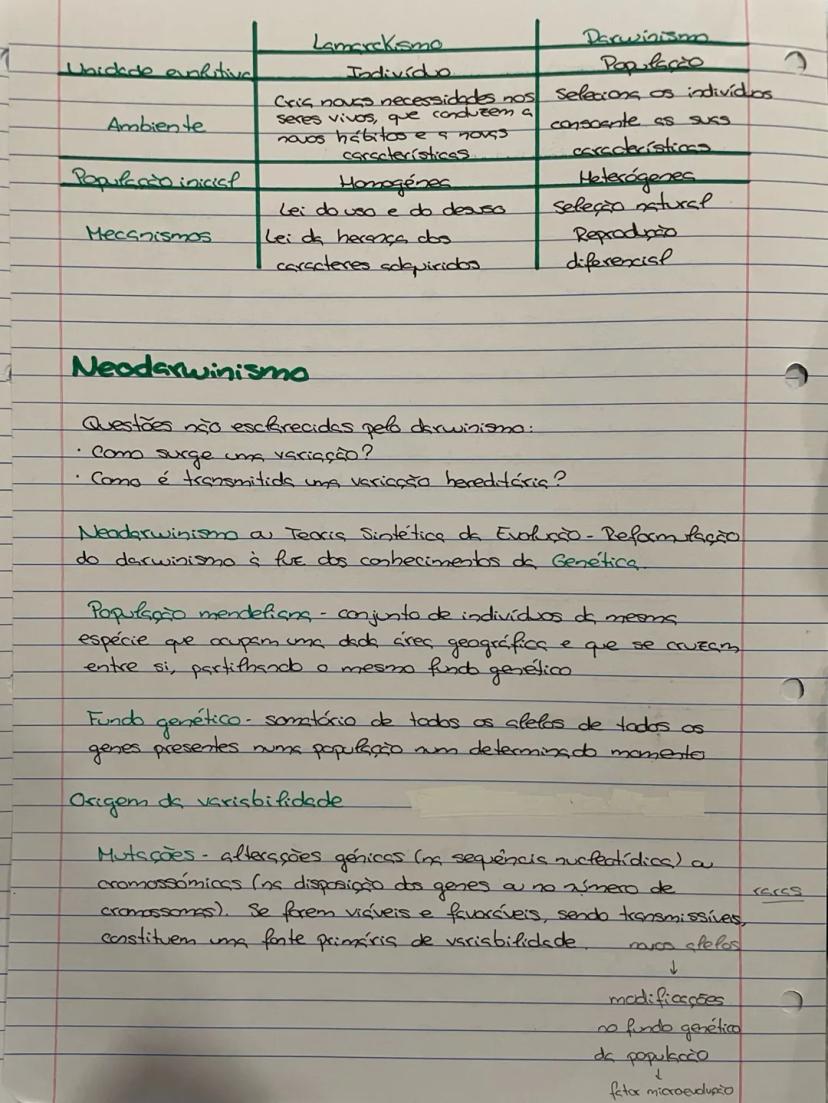 Lamarckismo Darwinismo
Unidade evolutiva Indivíduo População
Ambiente
Cria novas necessidades nos
seres vivos, que conduzem a
novos hábitos e a novas
características
Seleciona os indivíduos
consoante as suas
características
População inicial Homogénea Heterógenea
Mecanismos
Lei do uso e do desuso
Lei da herança dos
caracteres adquiridos
Seleção natural
Reprodução
diferencial
Neodarwinismo
Questões não esclarecidas pelo darwinismo:
· Como surge uma variação?
· Como é transmitida uma variação hereditária?
Neodarwinismo ou Teoria Sintética da Evolução - Reformulação
do darwinismo à luz dos conhecimentos da Genética
População mendeliana - conjunto de indivíduos da mesma
espécie que ocupam uma dada área geográfica e que se cruzam
entre si, partilhando o mesmo fundo genético
Fundo genético - somatório de todos os alelos de todos os
genes presentes numa população num determinado momento
Origem da variabilidade
Mutações - alterações génicas (na sequência nucleotídica) ou
cromossómicas (na disposição dos genes ou no número de
raras
cromossomas). Se forem viáveis e favoráveis, sendo transmissíveis,
constituem uma fonte primária de variabilidade.
novos alelos
↓
modificações
no fundo genético
da população
↓
fator microevolução